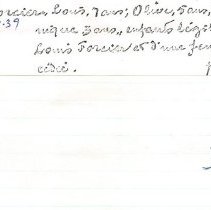 Louis, 7 ans; Olive, 5 ans,
nique 3 ans, enfants légit
Louis Forcier et d'une fem
cédé.